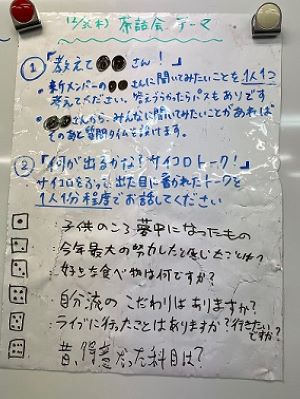 茶話会 テーマ
① 「教えて●●さん!」
・新メンバーの●●さんに聞いてみたいことを1人1つ
考えてください。答えづらかったらパスもありです
・●●さんから、みんなに聞いてみたいことがあれば
そのあと質問タイムを設けます。
② 「何が出るかな?サイコロトーク!」
サイコロをふって、出た目に書かれたトークを
1人1分程度でお話してください
:子供のころ夢中になったもの
:今年最大の努力したと感じたことは?
:好きな食べ物は何ですか?
:自分流のこだわりはありますか?
:ライブに行ったことはありますか?行きたいですか?
昔、得意だった科目は?